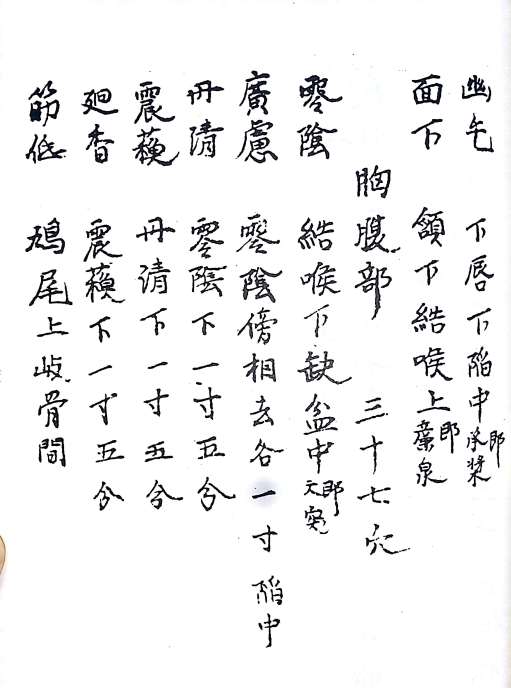 幽屯　下唇下陷中即承漿
面下　頷下結喉上即廉泉
胸腹部　三十七穴
零陰　結喉下缺盆中即天突
廣慮　零陰傍相去各一寸陷中
丹清　零陰下一寸五分
震蘋　丹清下一寸五分
廻香　震蘋下一寸五分
筋低　鳩尾上岐骨間